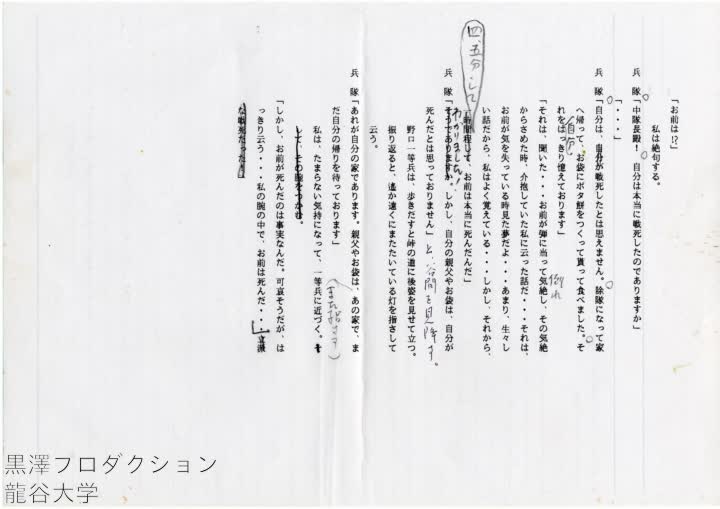 「お前は!?」
私は絶句する。
兵　隊「中隊長殿！　自分は本当に戦死したのでありますか」
「・・・・」
兵　隊「自分は、自分が戦死したとは思えません。除隊になって家
へ帰って、お袋にボタ餅をつくって貰って食べました。そ
れをはっきり憶えております」
自分
「それは、聞いた・・・お前が弾に当って気絶し、その気絶
倒れ
からさめた時、介抱していた私に云った話だ・・・それは、
お前が気を失っている時見た夢だよ・・・あまり、生々し
い話だから、私はよく覚えている・・・しかし、それから、
四、五分して
時間程して、お前は本当に死んだんだ」
わかりました！
兵　隊「そうでありますか。しかし、自分の親父やお袋は、自分が
死んだとは思っておりません」
と、谷間を見降す。
野口一等兵は、歩きだすと峠の道に後姿を見せて立つ。
振り返ると、遙か遠くにまたたいている灯を指さして
云う。
兵　隊「あれが自分の家であります。親父やお袋は、あの家で、ま
だ自分の帰りを待っております」
（また指さす）
私は、たまらない気持になって、一等兵に近づく。そ
して、その腕をつかむ。
「しかし、お前が死んだのは事実なんだ。可哀そうだが、は
っきり云う・・・私の腕の中で、お前は死んだ・・・立派
な戦死だった」
黒澤プロダクション
龍谷大学